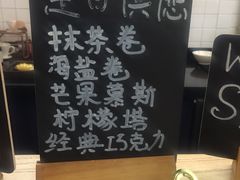 抹茶卷
海盐卷
芒果慕斯
柠檬塔
经典巧克力
W
S